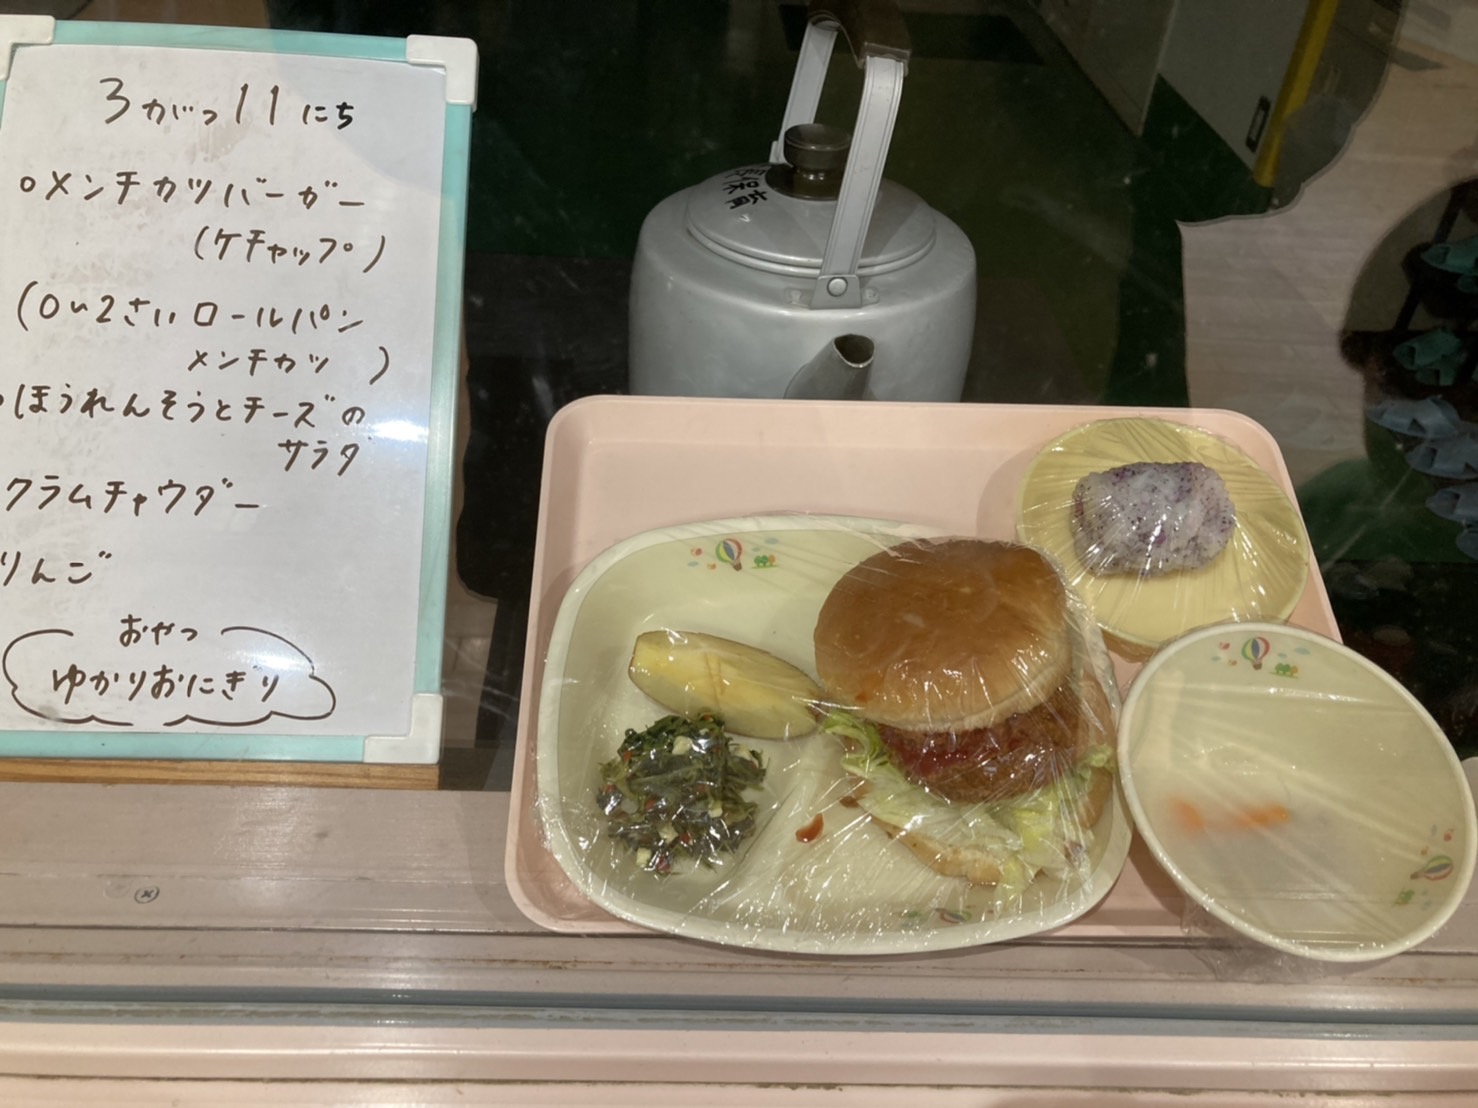 3がっ11にち
○メンチカツバーガー
(ケチャップ)
(0~2さい ロールパン
メンチカツ )
○ほうれんそうとチーズの
サラダ
クラムチャウダー
りんご
おやつ
ゆかりおにぎり